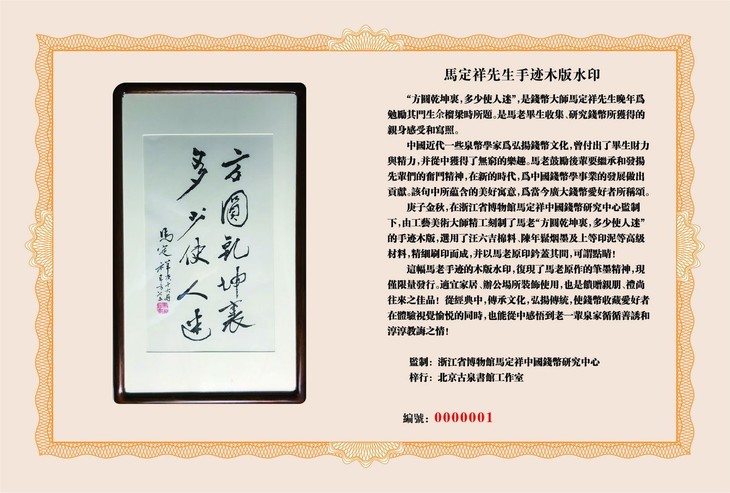 方圓乾坤裏
多少使人迷
馬定祥
馬定祥先生手迹木版水印
“方圓乾坤裏，多少使人迷”，是錢幣大師馬定祥先生晚年爲
勉勵其門生余榴梁時所題。是馬老畢生收集、研究錢幣所獲得的
親身感受和寫照。
中國近代一些泉幣學家爲弘揚錢幣文化，曾付出了畢生財力
與精力，并從中獲得了無窮的樂趣。馬老鼓勵後輩要繼承和發揚
先輩們的奮鬥精神，在新的時代，爲中國錢幣學事業的發展做出
貢獻。該句中所蘊含的美好寓意，爲當今廣大錢幣愛好者所稱頌。
庚子金秋，在浙江省博物館馬定祥中國錢幣研究中心監制
下，由工藝美術大師精工刻制了馬老“方圓乾坤裏，多少使人迷”
的手迹木版，選用了汪六吉棉料、陳年鬆烟墨及上等印泥等高級
材料，精細刷印而成，并以馬老原印鈐蓋其間，可謂點睛！
這幅馬老手迹的木版水印，復現了馬老原作的筆墨精神，現
僅限量發行。適宜家居、辦公場所裝飾使用，也是饋贈親朋、禮尚
往來之佳品！從經典中，傳承文化，弘揚傳統，使錢幣收藏愛好者
在體驗視覺愉悦的同時，也能從中感悟到老一輩泉家循循善誘和
淳淳教誨之情！
監制：浙江省博物館馬定祥中國錢幣研究中心
梓行：北京古泉書館工作室
編號：0000001